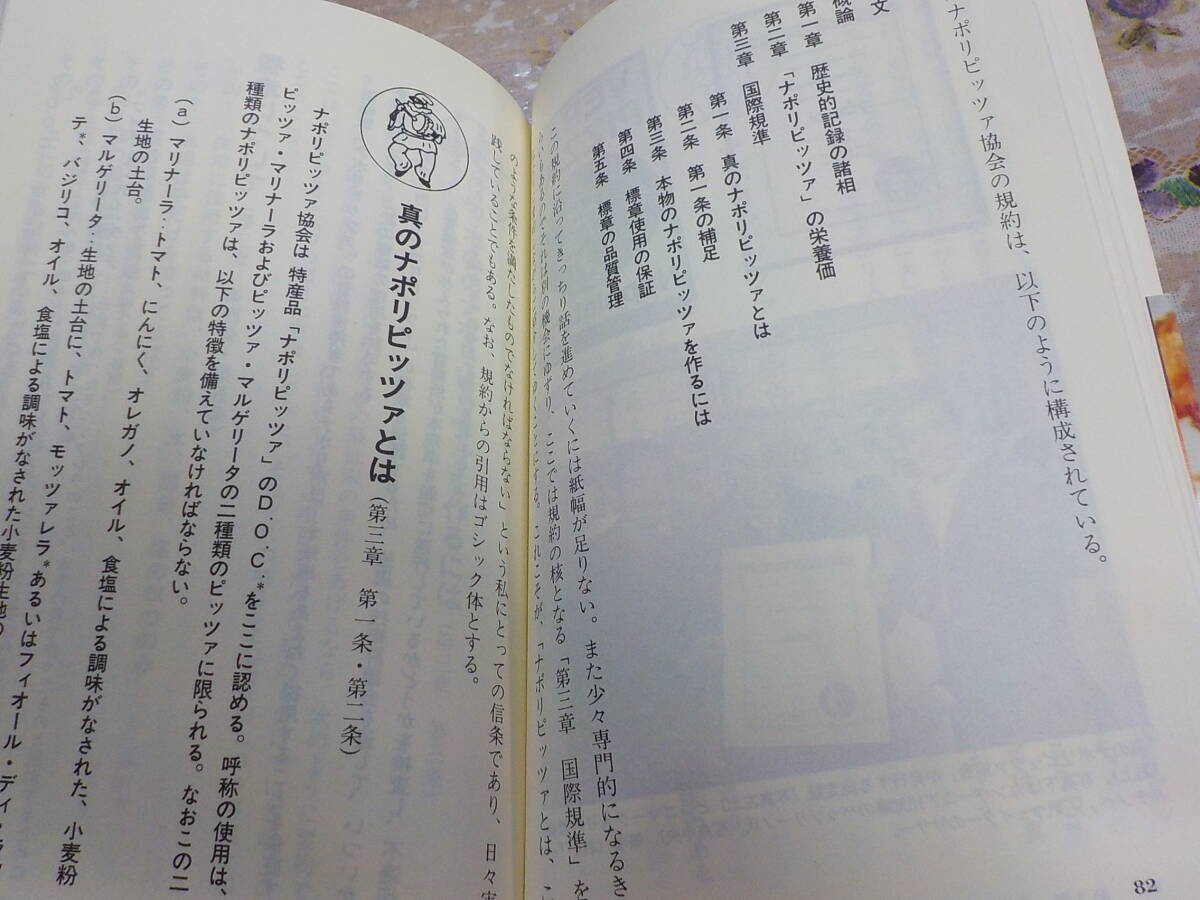 ナポリピッツァ協会の規約は、以下のように構成されている。
文
概論
第一章　歴史的記録の諸相
第二章　「ナポリピッツァ」の栄養価
第三章　国際規準
第一条　真のナポリピッツァとは
第二条　第一条の補足
第三条　本物のナポリピッツァを作るには
第四条　標章使用の保証
第五条　標章の品質管理
この規約に沿ってきっちり話を進めていくには紙幅が足りない。また少々専門的になるき
それは別の機会にゆずり、ここでは規約の核となる「第三章　国際規準」を
ことにする。これこそが、「ナポリピッツァとは、こ
のような条件を満たしたものでなければならない」という私にとっての信条であり、日々実
践していることでもある。なお、規約からの引用はゴシック体とする。
真のナポリピッツァとは（第三章　第一条・第二条）
ナポリピッツァ協会は 特産品「ナポリピッツァ」のD.O.C.*をここに認める。呼称の使用は、
ピッツァ・マリナーラおよびピッツァ・マルゲリータの二種類のピッツァに限られる。なおこの二
種類のナポリピッツァは、以下の特徴を備えていなければならない。
（a）マリナーラ：トマト、にんにく、オレガノ、オイル、食塩による調味がなされた、小麦粉
生地の土台。
（b）マルゲリータ：生地の土台に、トマト、モッツァレラ*あるいはフィオール・ディ・ラッ
テ*、バジリコ、オイル、食塩による調味がなされた小麦粉生地の
82